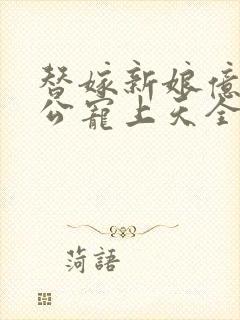 替嫁新娘億
公寵上天全
菏語